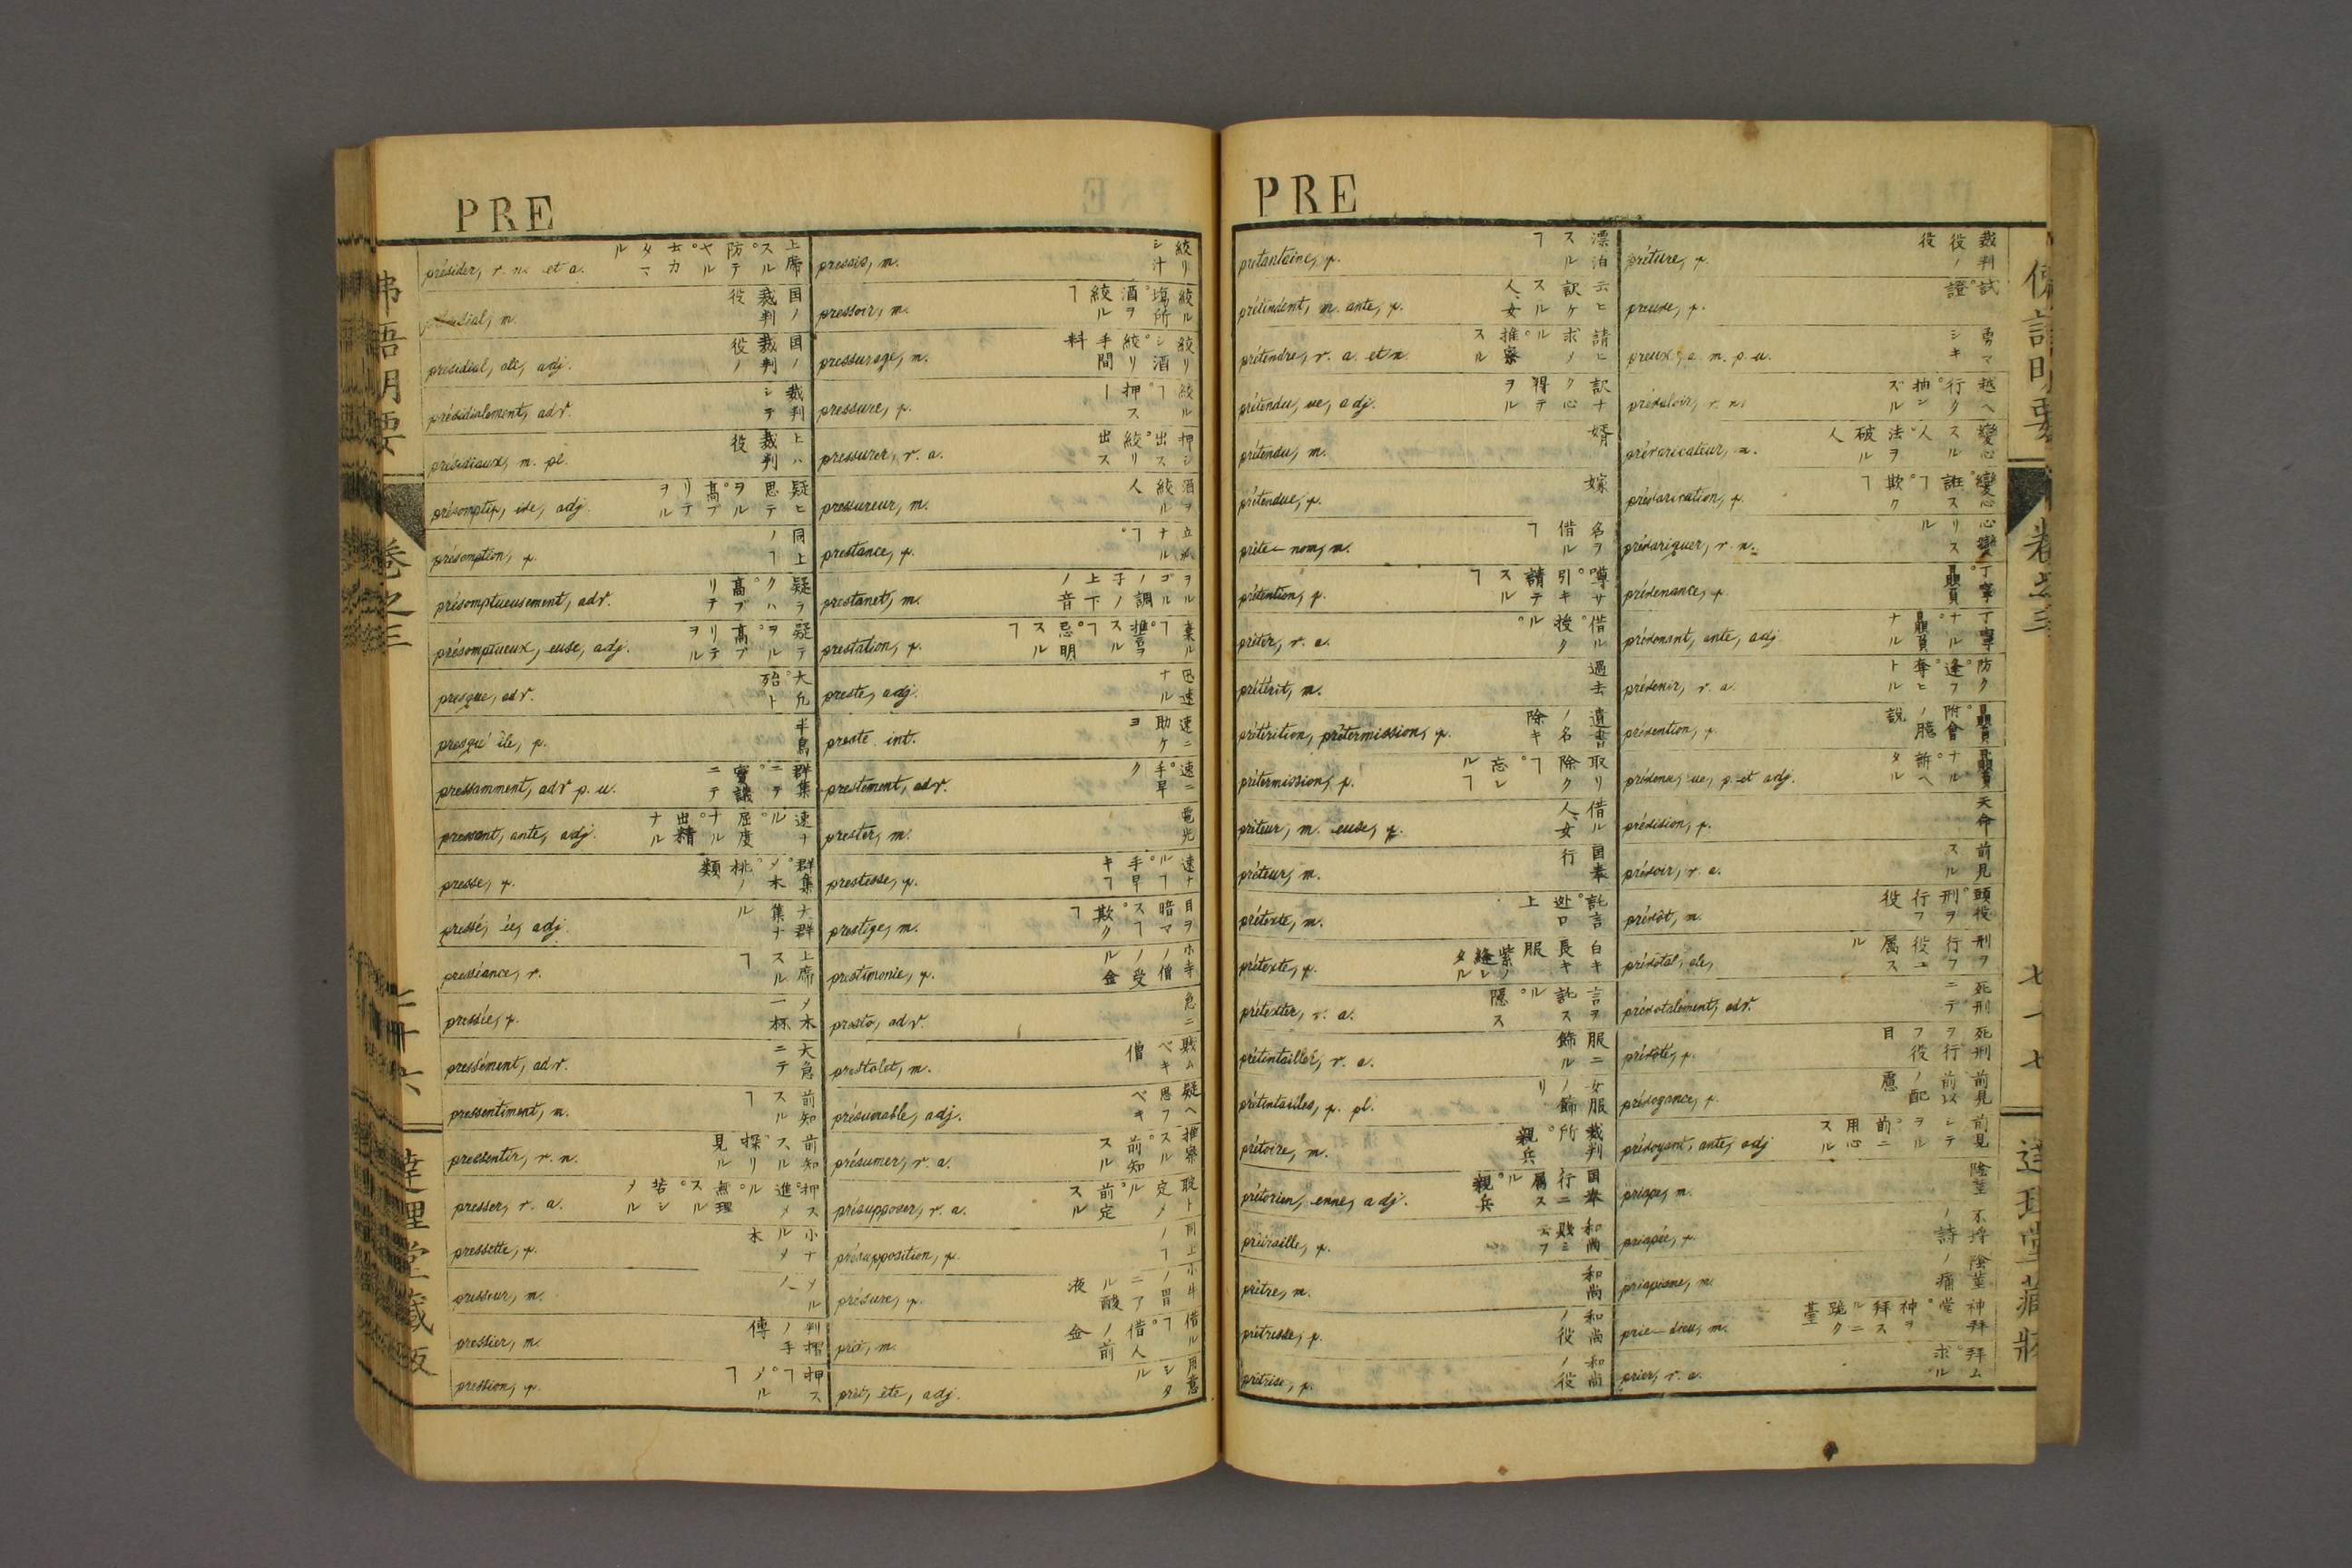 PRE
présider, v. n. et a. 上席スル。防テヤル。
présidial, m. 国ノ裁判役
présidial, ale, adj. 国ノ裁判ノ役
présidialement, adv. 裁判シテ
présidiaux, m. pl. 上ハ裁判役
présomptif, ive, adj. 疑ヒ思テルヲ。高ブリテルヲ
présomption, f. 同上ノヿ
présomptueusement, adv. 疑ヲハク。高ブリテ
présomptueux, euse, adj. 疑テルヲ。高ブリテルヲ
presque, adv. 大凡。殆ト
presqu'île, f. 半島
pressamment, adv. p. u.
pressant, ante, adj.
presse, f. 群集。〆木。桃ノ類
pressé, ée, adj. 群集ナル
presséance, f. 上席スルヿ
pressée, f. 〆木一杯
pressément, adv. 大急ニテ
pressentiment, m. 前知スルヿ
pressentir, v. n. 前知スル。探リ見ル
presser, v. a. 押ス。進メル。無理スル。苦シメル
pressette, f. 小ナル〆木
presseur, m.
pressier, m. 判摺ノ手傳
pression, f. 押スヿ。〆ルヿ
pressis, m. 絞リシ汁
pressoir, m. 絞ル場所。酒ヲ絞ルヿ
pressurage, m. 絞リシ酒。絞リ手間料
pressure, f. 絞ルヿ。押スヿ
pressurer, v. a. 押シ出ス。絞リ出ス
pressureur, m. 酒ヲ絞ル人
prestance, f. 立派ナルヿ。
prestanet, m.
prestation, f.
preste, adj. 迅速ナル
preste, int. 速ニ助ケヨ
prestement, adv. 速ニ。手早ク
prester, m. 電光
prestesse, f. 速ナルヿ。手早キヿ
prestige, m. 目ヲ暗マスヿ。欺クヿ
prestimonie, f. 小寺ノ僧ノ受ル金
presto, adv. 急ニ
prestolet, m. 賎ムベキ僧
présumable, adj. 疑ヘ思フベキ
présumer, v. a. 推察スル。前知スル
présupposer, v. a. 聢ト定メル。前定スル
présupposition, f. 同上ノヿ
présure, f. 小牛ノ胃ニアル酸液
prêt, m. 借ルヿ。借人ノ前金
prêt, ête, adj. 用意シタル
PRE
pretantaine, f. 漂泊スルヿ
prétendant, m. ante, f. 云ヒ訳ケスル人、女
prétendre, v. a. et n. 請ヒ求メル。推察スル
prétendu, ue, adj. 訳ナク心得テルヲ
prétendu, m. 婿
prétendue, f. 嫁
prête-nom, m. 名ヲ借ルヿ
prétention, f. 噂サ。引キテ請スルヿ
prêter, v. a. 借ル。授クル。
prétérit, m. 過去
prétérition, prétermission, f. 遺書ノ名除キ
prétermission, f. 取リ除クヿ。忘レルヿ
prêteur, m. euse, f. 借ル人、女
préteur, m. 国奉行
prétexte, m. 託言。遁口上
prétexte, f. 白キ長キ服紫ノ縫レタル
prétexter, v. a. 言ヲ託スル。隠ス
prétintailler, v. a. 服ニ飾ル
prétintailles, f. pl. 女服ノ飾リ
prétoire, m. 裁判所。親兵
prétorien, enne, adj. 国奉行ニ属スル。親兵
prêtraille, f. 和尚賎ミ云フ
prêtre, m. 和尚
prêtresse, f. 和尚ノ役
prêtrise, f. 和尚ノ役
préture, f. 裁判役ノ役
preuve, f. 試。證
preux, a. m. p. u. 勇マシキ
prévaloir, v. n. 越ヘ行ク。抽ンズル
prévaricateur, m. 變心スル人。法ヲ破ル人
prévarication, f. 變心。誑スヿ。欺クヿ
prévariquer, v. n. 心變リスル
prévenance, f. 丁寧。贔負
prévenant, ante, adj. 丁寧ナル。贔負ナル
prévenir, v. a. 防ク。逢フ。奪ヒトル
prévention, f. 贔負。附會ノ臆説
prévenu, ue, p. et adj. 贔負ナル。訴ヘタル
prévision, f. 天命
prévoir, v. a. 前見スル
prévôt, m. 頭役。刑ヲ行フ役
prévôtal, ale, 刑ヲ行フ役ニ属スル
prévôtalement, adv. 死刑ニテ
prévôté, f. 死刑ヲ行フ役目
prévoyance, f. 前見。前以ノ配慮
prévoyant, ante, adj. 前見シテルヲ。前ニ用心スル
priape, m. 陰莖
priapée, f. 不埒ノ詩
priapisme, m. 陰莖ノ痛
prie-dieu, m. 神拜堂。神ヲ拜スルニ跪ク臺
prier, v. a. 拜ム。求ル
佛語明要
卷之三
七一七
達理堂藏版